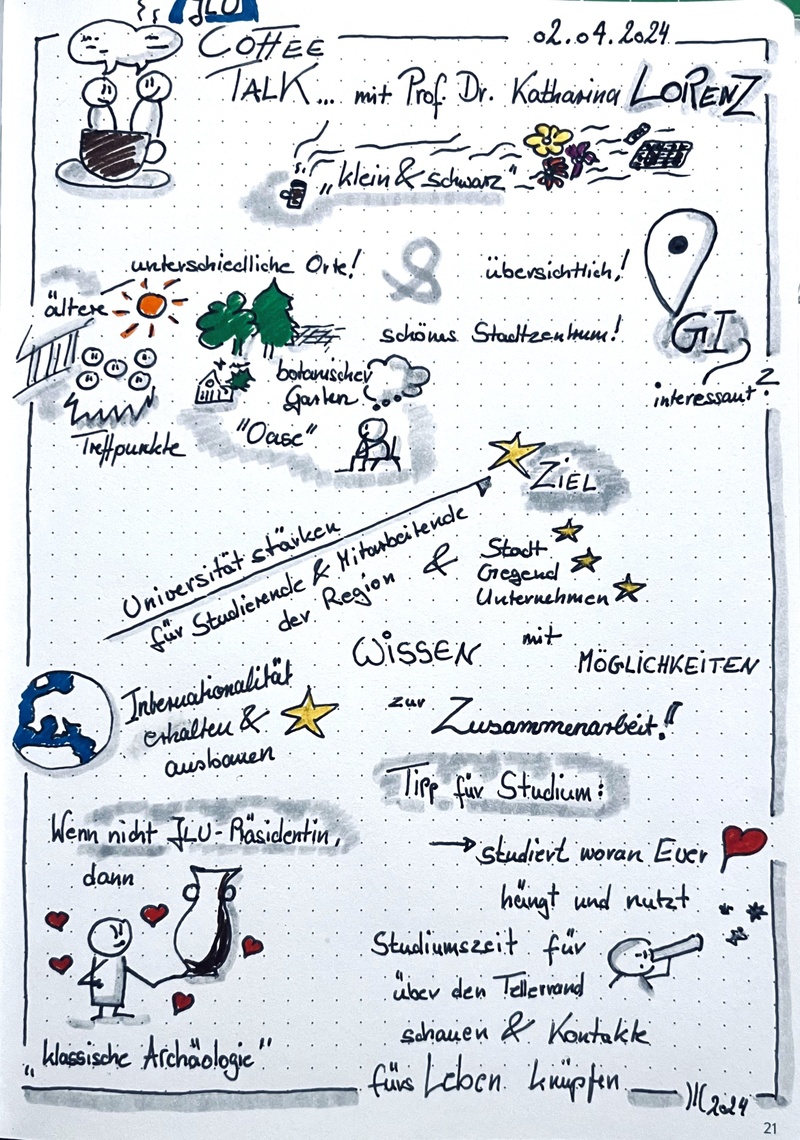 JLU
COFFEE
02.04.2024
TALK... mit Prof. Dr. Katharina LORENZ
"klein & schwarz"
unterschiedliche Orte!
&
übersichtlich!
ältere
schönes Stadtzentrum!
GI
interessant?
botanischer
Garten
Treffpunkte
"Oase"
ZIEL
Universität stärken
für Studierende & Mitarbeitende
der Region
&
Stadt
Gegend
Unternehmen
WISSEN
mit
MÖGLICHKEITEN
zur
Zusammenarbeit!!
Internationalität
erhalten &
ausbauen
Tipp für Studium:
Wenn nicht JLU-Präsidentin,
dann
"klassische Archäologie"
→ studiert woran Euer
hängt und nutzt
Studiumszeit für
über den Tellerrand
schauen & Kontakte
fürs Leben knüpfen
2024
21